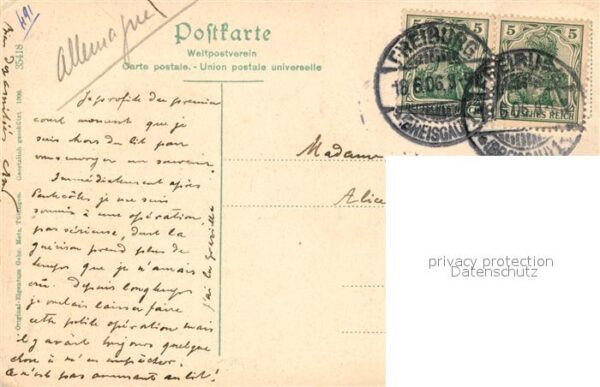 491
Allemagne!
Postkarte
Weltpostverein
Carte postale. - Union postale universelle
5 5 5 5
FREIBURG
18.6.06.
(BREISGAU)
REICH
35418
Original-Eigentum Gebr. Metz, Tübingen. Gesetzlich geschützt 1906.
Je profite du premier
court moment que je
suis hors du lit pour
vous envoyer un souvenir.
Immédiatement après
Pentecôtes je me suis
soumis à une opération
pas sérieuse, dont la
guérison prend plus de
temps que je n'aurais
cru. Depuis longtemps
je voulais laisser faire
cette petite opération mais
il y avait toujours quelque
chose à m'en empêcher.
Ce n'est pas amusant au lit!
Madame
Alice
privacy protection
Datenschutz